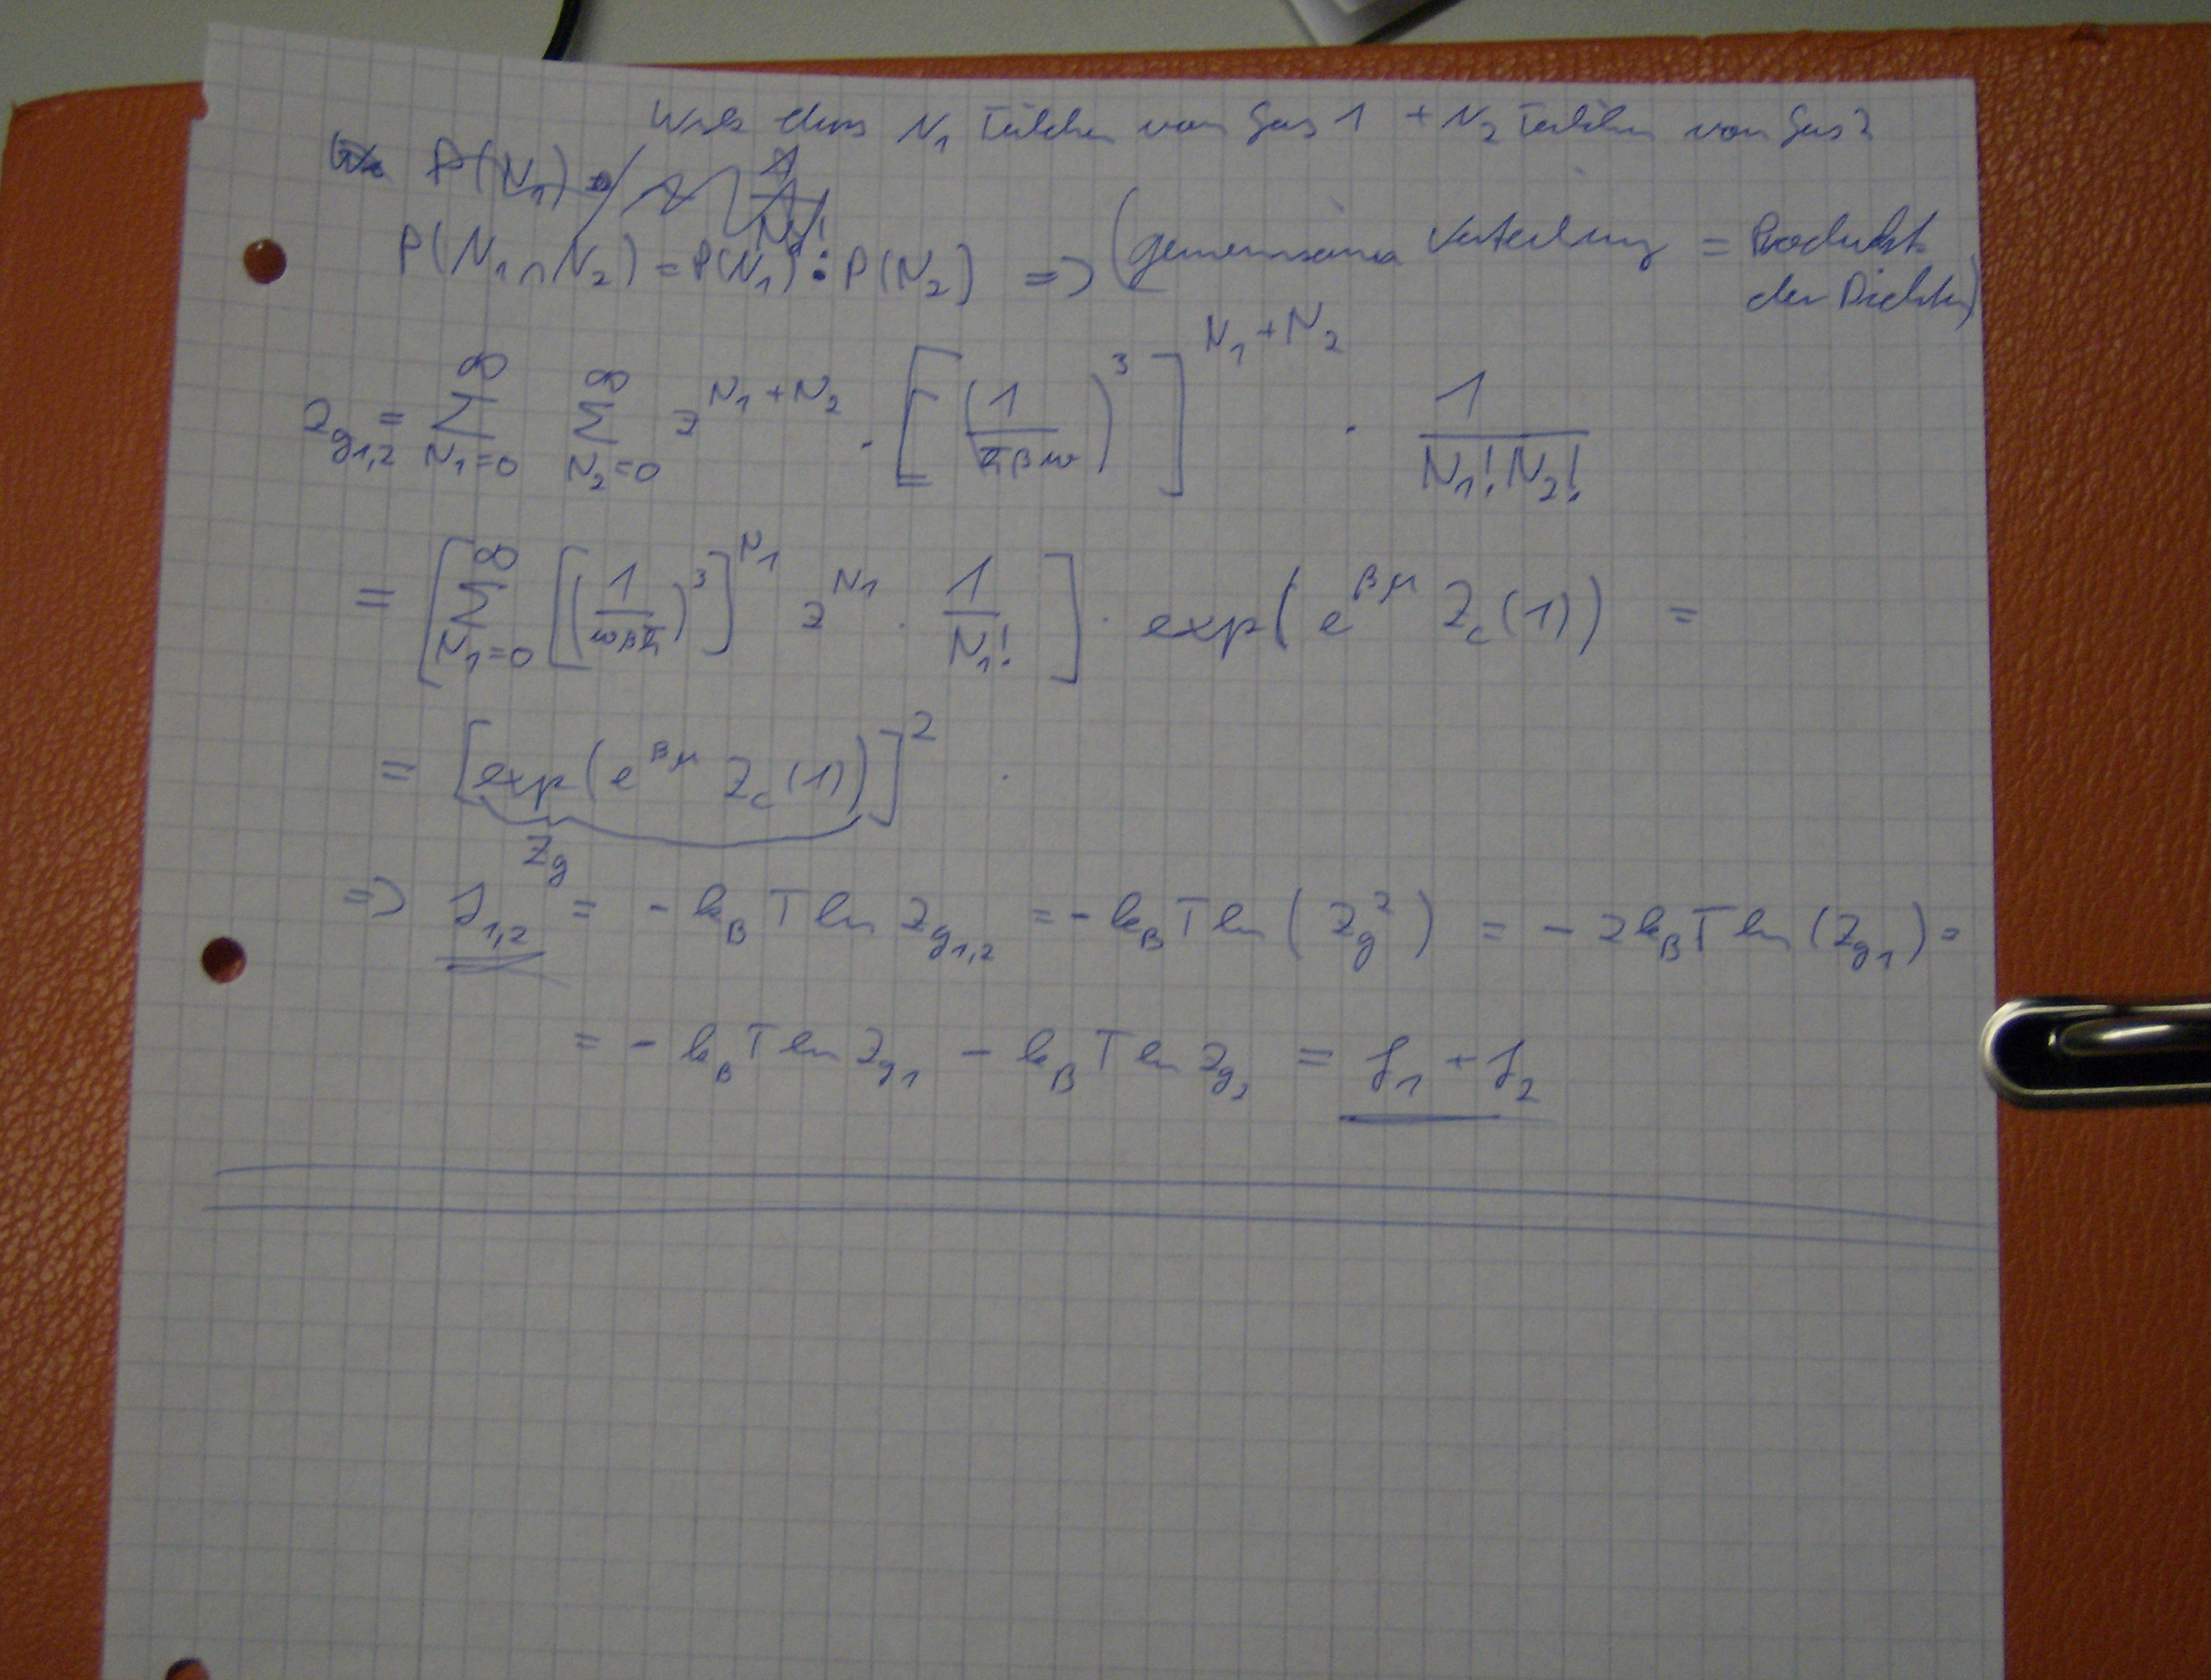 Wsk dass N₁ Teilchen von Gas 1 + N₂ Teilchen von Gas 2
P(N₁)
P(N₁ ∩ N₂) = P(N₁) · P(N₂) => (gemeinsame Verteilung = Produkt
der Dichten)
Z_{g1,2} = ∑_{N₁=0}^{∞} ∑_{N₂=0}^{∞} z^{N₁+N₂} · [(1/(ħβω))³]^{N₁+N₂} · 1/(N₁! N₂!)
= [∑_{N₁=0}^{∞} [(1/(ωβħ))³]^{N₁} z^{N₁} · 1/N₁!] · exp(e^{βμ} Z_c(1)) =
= [exp(e^{βμ} Z_c(1))]²
Z_g
=> J_{1,2} = - k_B T ln Z_{g1,2} = - k_B T ln(Z_g²) = - 2 k_B T ln(Z_{g1}) =
= - k_B T ln Z_{g1} - k_B T ln Z_{g2} = J₁ + J₂